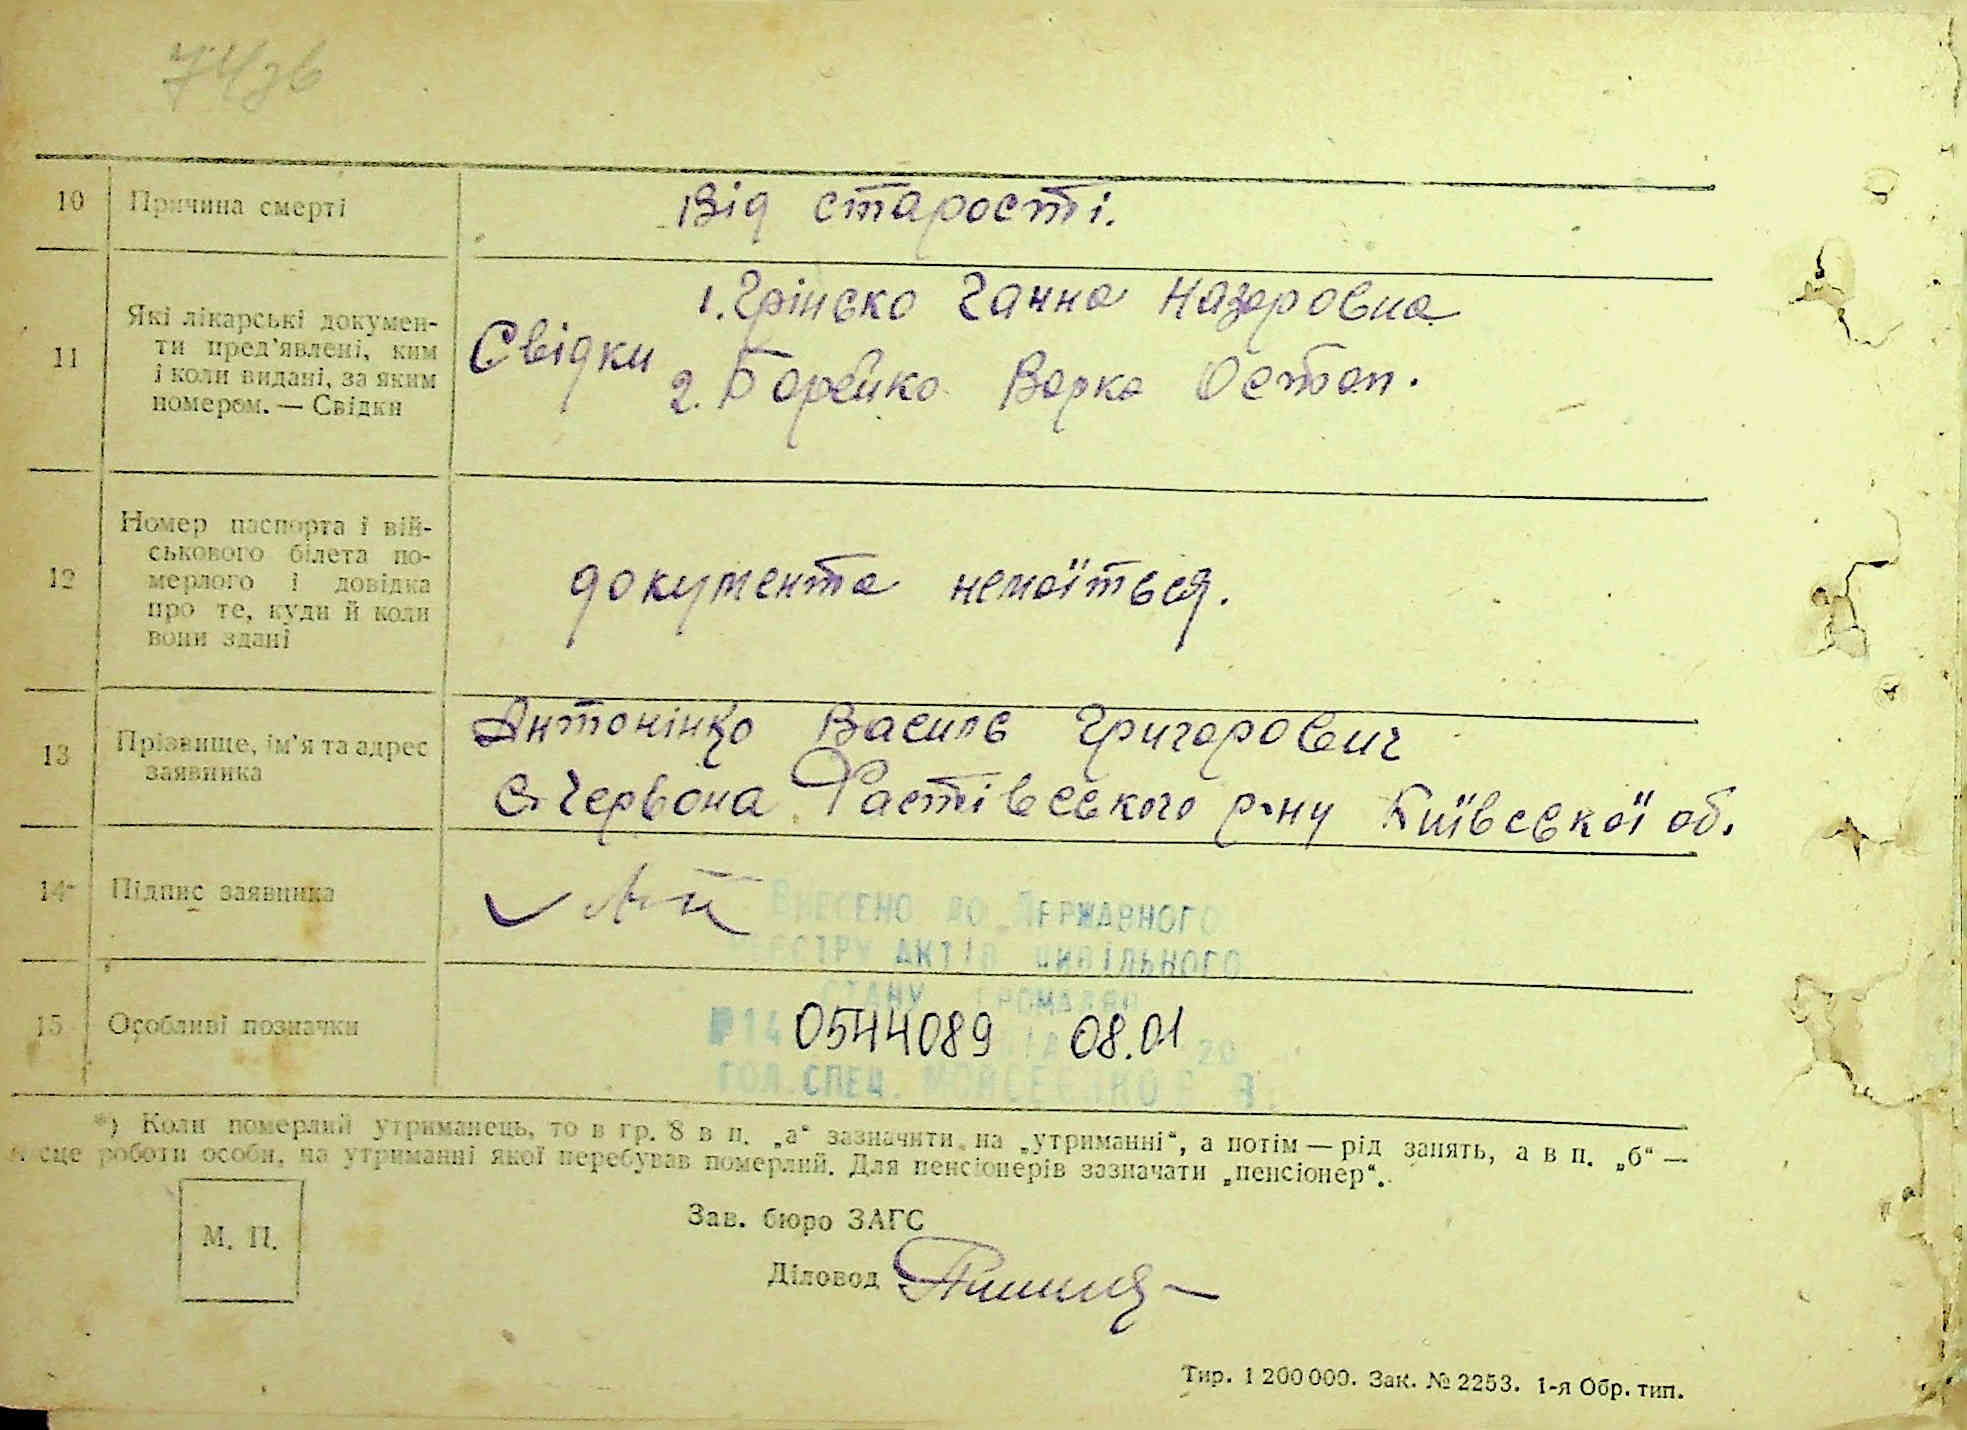 74зв
10 Причина смерті Від старості.
11 Які лікарські докумен-
ти пред'явлені, ким
і коли видані, за яким
номером. — Свідки
Свідки 1. Грінько Ганна Назаровна
2. Борейко Варка Остап.
12 Номер паспорта і вій-
ськового білета по-
мерлого і довідка
про те, куди й коли
вони здані
документа немаїться.
13 Прізвище, ім'я та адрес
заявника
Антонінко Василь Григорович
с. Червона Фастівського р-ну Київської об.
14 Підпис заявника
ВНЕСЕНО ДО ДЕРЖАВНОГО
РЕЄСТРУ АКТІВ ЦИВІЛЬНОГО
СТАНУ ГРОМАДЯН
15 Особливі позначки
№14 0544089 ВІД 08.01 20
ГОЛ. СПЕЦ. МОЙСЕЄНКО
*) Коли померлий утриманець, то в гр. 8 в п. „а“ зазначити на „утриманні“, а потім — рід занять, а в п. „б“ —
місце роботи особи, на утриманні якої перебував померлий. Для пенсіонерів зазначати „пенсіонер“.
М. П.
Зав. бюро ЗАГС
Діловод
Тир. 1 200 000. Зак. № 2253. 1-я Обр. тип.